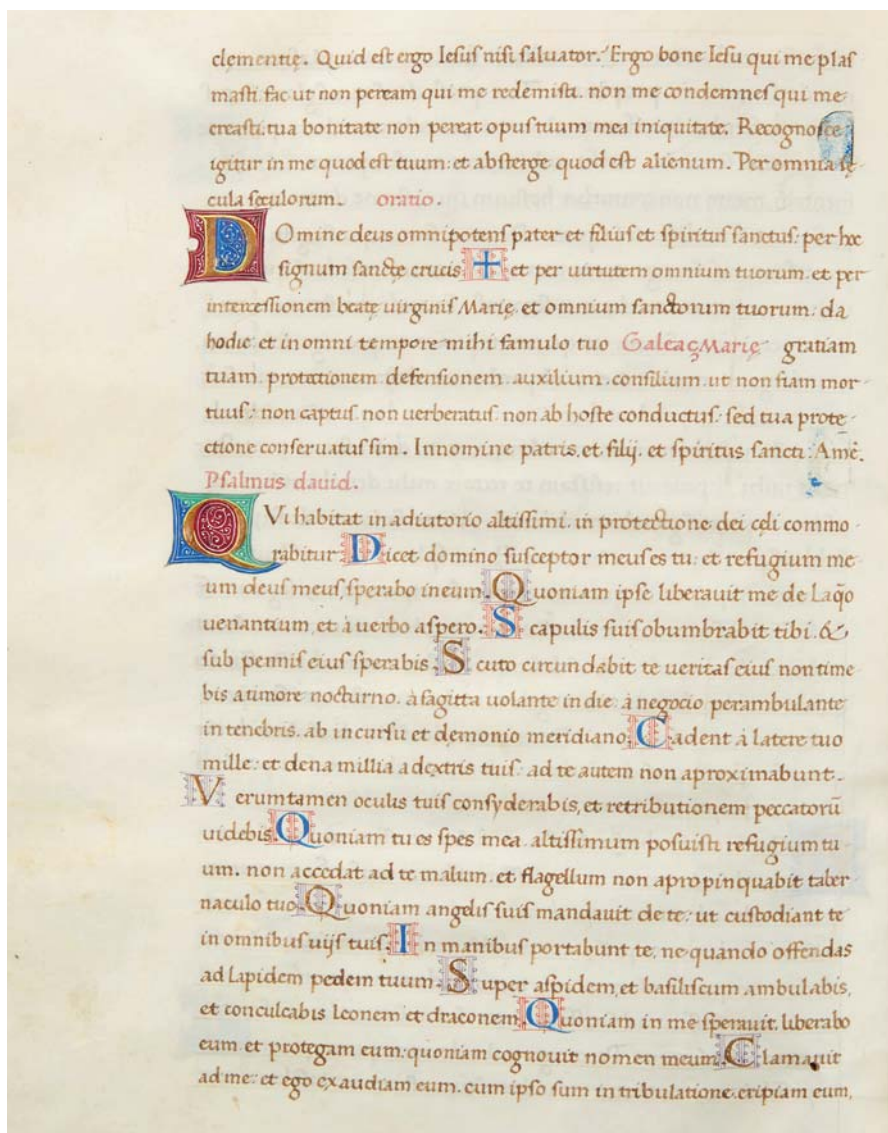 clementię. Quid est ergo Iesus nisi saluator. Ergo bone Iesu qui me plas
masti fac ut non peream qui me redemisti. non me condemnes qui me
creasti. tua bonitate non pereat opus tuum mea iniquitate. Recognosce
igitur in me quod est tuum: et absterge quod est alienum. Per omnia sę
cula sęculorum. oratio.
Domine deus omnipotens pater et filius et spiritus sanctus: per hoc
signum sanctę crucis + et per uirtutem omnium tuorum. et per
intercessionem beatę uirginis Marię. et omnium sanctorum tuorum. da
hodie et in omni tempore mihi famulo tuo Galeaç Marię gratiam
tuam. protectionem. defensionem. auxilium. consilium. ut non fiam mor
tuus: non captus. non uerberatus. non ab hoste conductus: sed tua prote-
ctione conseruatus sim. In nomine patris. et filij. et spiritus sancti: Amē.
Psalmus dauid.
QVi habitat in adiutorio altissimi. in protectione dei cęli commo-
rabitur. Dicet domino susceptor meus es tu: et refugium me
um deus meus, sperabo in eum. Quoniam ipse liberauit me de laq̄o
uenantium, et à uerbo aspero. Scapulis suis obumbrabit tibi. &
sub pennis eius sperabis. Scuto circundabit te ueritas eius non time
bis a timore nocturno. à sagitta uolante in die. à negocio perambulante
in tenebris. ab incursu et demonio meridiano. Cadent à latere tuo
mille: et dena millia a dextris tuis: ad te autem non aproximabunt.
Verumtamen oculis tuis consyderabis, et retributionem peccatorū
uidebis. Quoniam tu es spes mea. altissimum posuisti refugium tu-
um. non accedat ad te malum. et flagellum non apropinquabit taber-
naculo tuo. Quoniam angelis suis mandauit de te: ut custodiant te
in omnibus uijs tuis. In manibus portabunt te, ne quando offendas
ad lapidem pedem tuum. Super aspidem, et basiliscum ambulabis,
et conculcabis leonem et draconem. Quoniam in me sperauit. liberabo
eum et protegam eum: quoniam cognouit nomen meum. Clamauit
ad me: et ego exaudiam eum. cum ipso sum in tribulatione. eripiam eum,